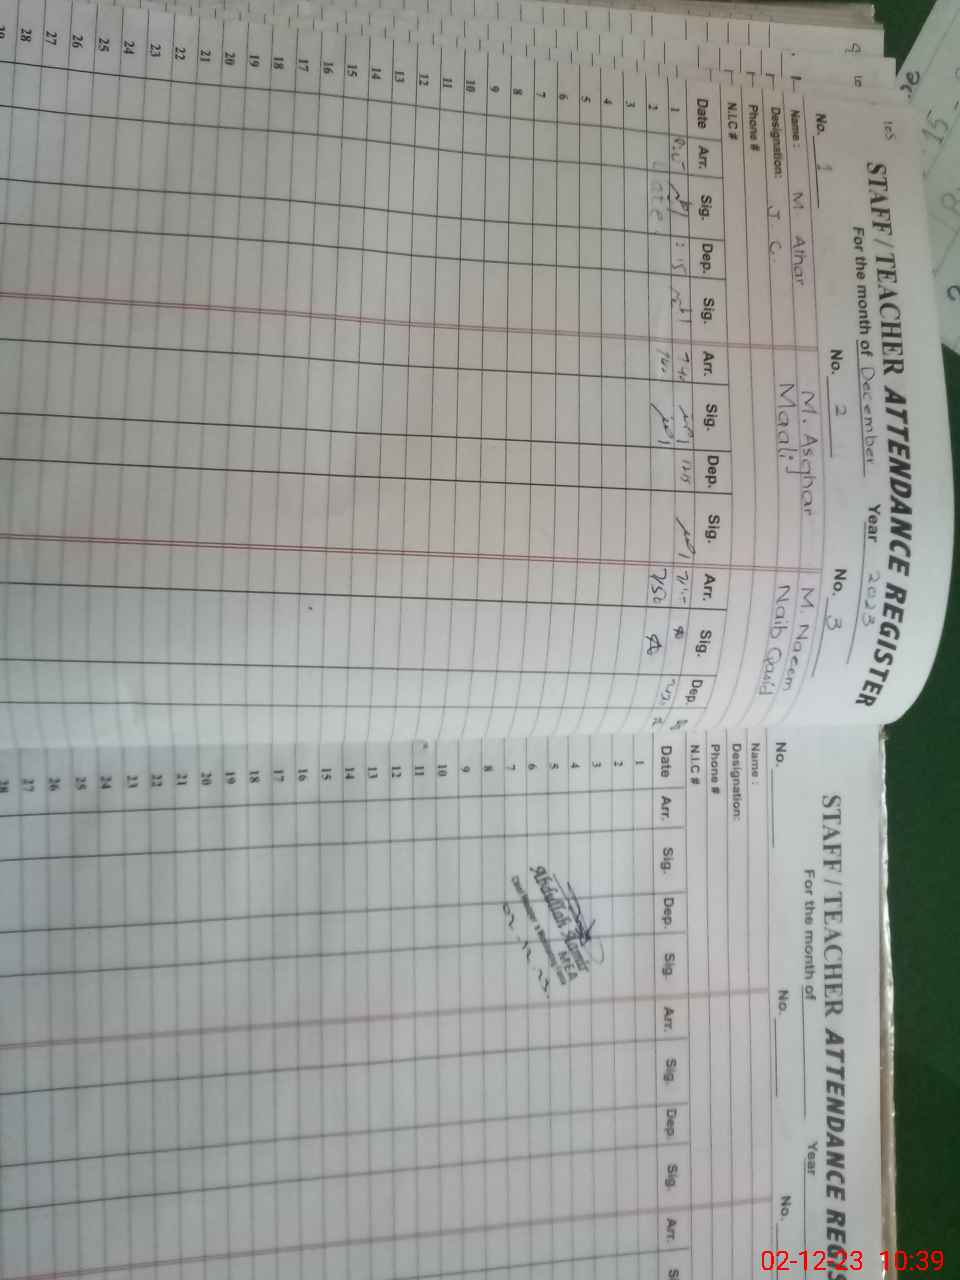 105
STAFF / TEACHER ATTENDANCE REGISTER
For the month of December Year 2023
No. 1 No. 2 No. 3
Name : M Athar M. Asghar M. Naeem
Designation: J. C. Maali Naib Qasid
Phone #
N.I.C #
Date Arr. Sig. Dep. Sig. Arr. Sig. Dep. Sig. Arr. Sig. Dep.
1
2 7/50
3
4
5
6
7
8
9
10
11
12
13
14
15
16
17
18
19
20
21
22
23
24
25
26
27
28
STAFF / TEACHER ATTENDANCE REGIS
For the month of Year
No. No. No.
Name :
Designation:
Phone #
N.I.C #
Date Arr. Sig. Dep. Sig. Arr. Sig. Dep. Sig. Arr. S
1
2
3
4
5
6
7
8
9
10
11
12
13
14
15
16
17
18
19
20
21
22
23
24
25
26
27
28
Abdullah
MEA
02.12.23
02-12-23 10:39